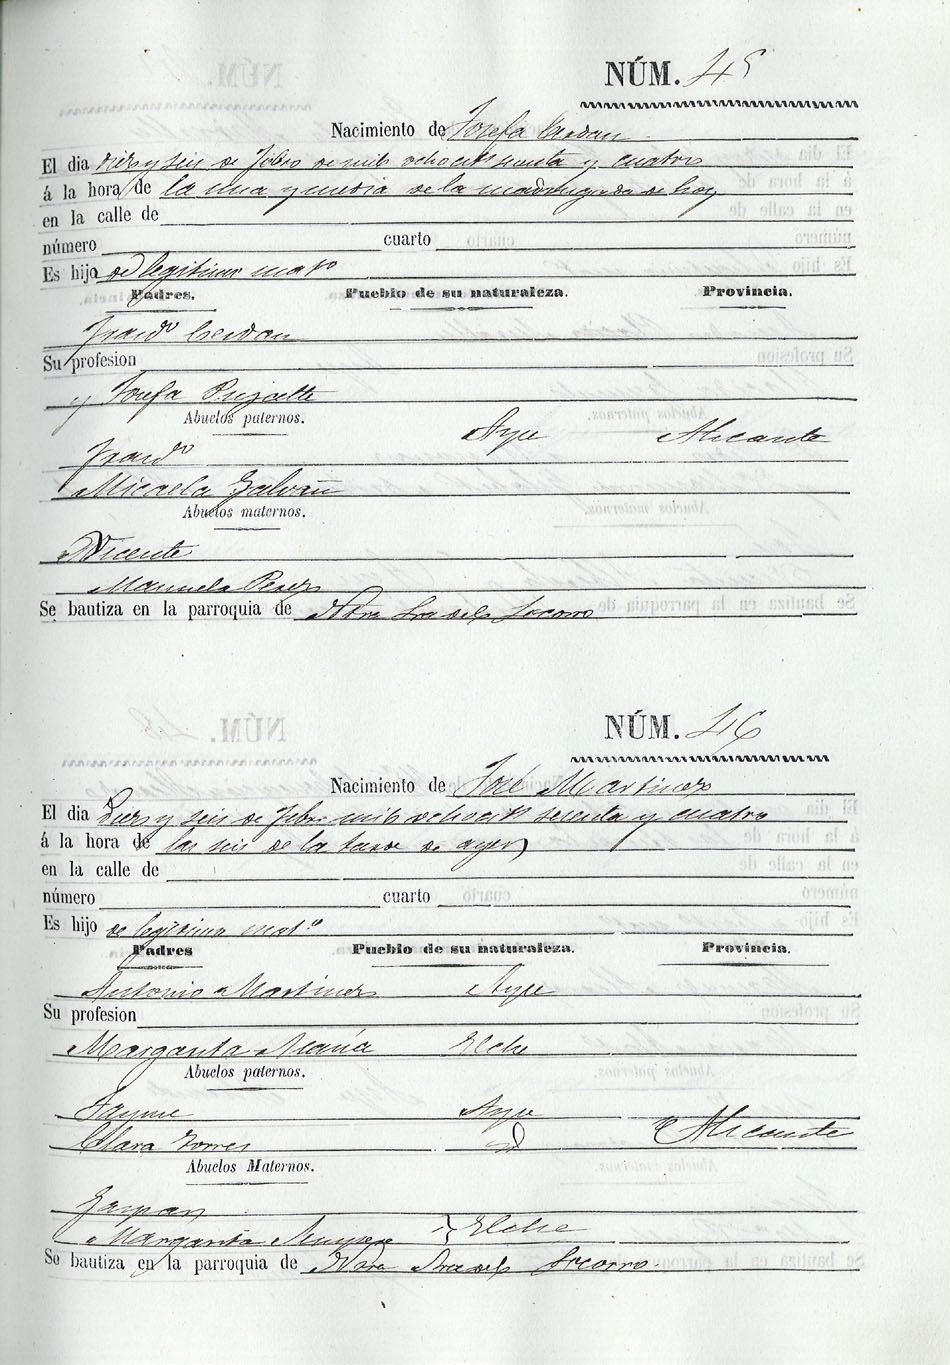 NÚM. 45
Nacimiento de Josefa Cerdan
El dia diez y seis de Febro de mil ochocits sesenta y cuatro
á la hora de la una y media de la madrugada de hoy
en la calle de
número cuarto
Es hijo de legitimo mato
Padres. Pueblo de su naturaleza. Provincia.
Franco Cerdan
Su profesion
y Josefa Pujalte
Abuelos paternos.
Franco Aspe Alicante
Micaela Galvañ
Abuelos maternos.
Vicente
Manuela Perez
Se bautiza en la parroquia de Ntra Sra del Socorro
NÚM. 46
Nacimiento de José Martinez
El dia Diez y seis de Febro mil ochocits sesenta y cuatro
á la hora de las seis de la tarde de ayer
en la calle de
número cuarto
Es hijo de legitimo mato
Padres Pueblo de su naturaleza. Provincia.
Antonio Martinez Aspe
Su profesion
Margarita Elche
Abuelos paternos.
Jayme Aspe
Clara Torres id Alicante
Abuelos Maternos.
Gaspar
Margarita } Elche
Se bautiza en la parroquia de Ntra Sra del Socorro